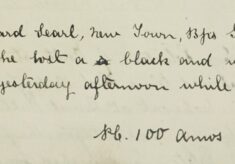 ard Dearl, New Town, Bfrs
he lost a black and
yesterday afternoon while
Pb. 100 Amos